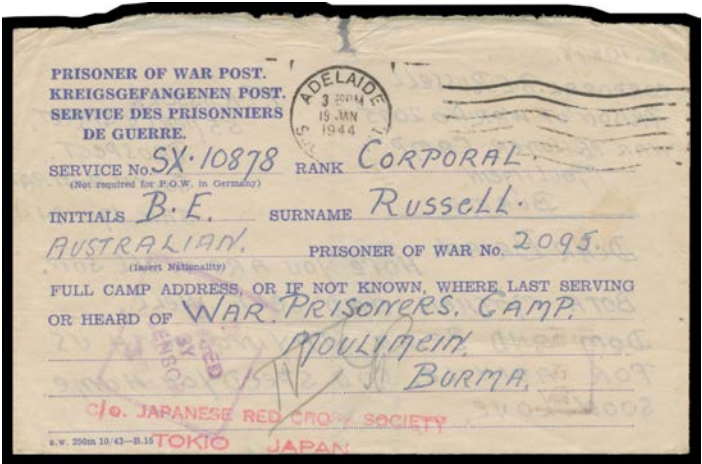 PRISONER OF WAR POST.
KREIGSGEFANGENEN POST.
SERVICE DES PRISONNIERS
DE GUERRE.
ADELAIDE
3 30PM
19 JAN
1944
SERVICE No. SX.10878 RANK CORPORAL.
(Not required for P.O.W. in Germany)
INITIALS B.E. SURNAME RUSSELL.
AUSTRALIAN. PRISONER OF WAR No. 2095.
(Insert Nationality)
FULL CAMP ADDRESS, OR IF NOT KNOWN, WHERE LAST SERVING
OR HEARD OF WAR. PRISONERS. CAMP.
MOULIMEIN.
BURMA.
c/o. JAPANESE RED CROSS SOCIETY
TOKIO JAPAN
a.w. 250m 10/43—B.15